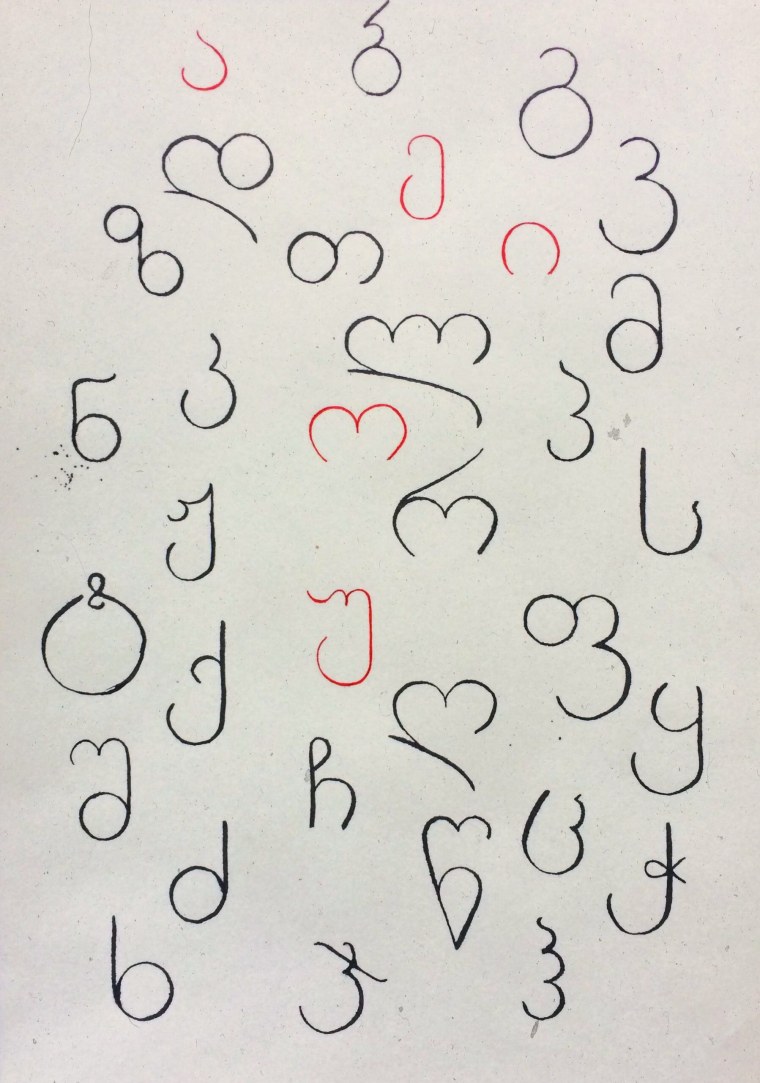 ა ბ გ
დ ე ვ
ზ თ ი
კ ლ მ
ნ ო პ
ჟ რ ს
ტ უ ფ
ქ ღ ყ
შ ჩ ც
ძ წ ჭ
ხ ჯ ჰ